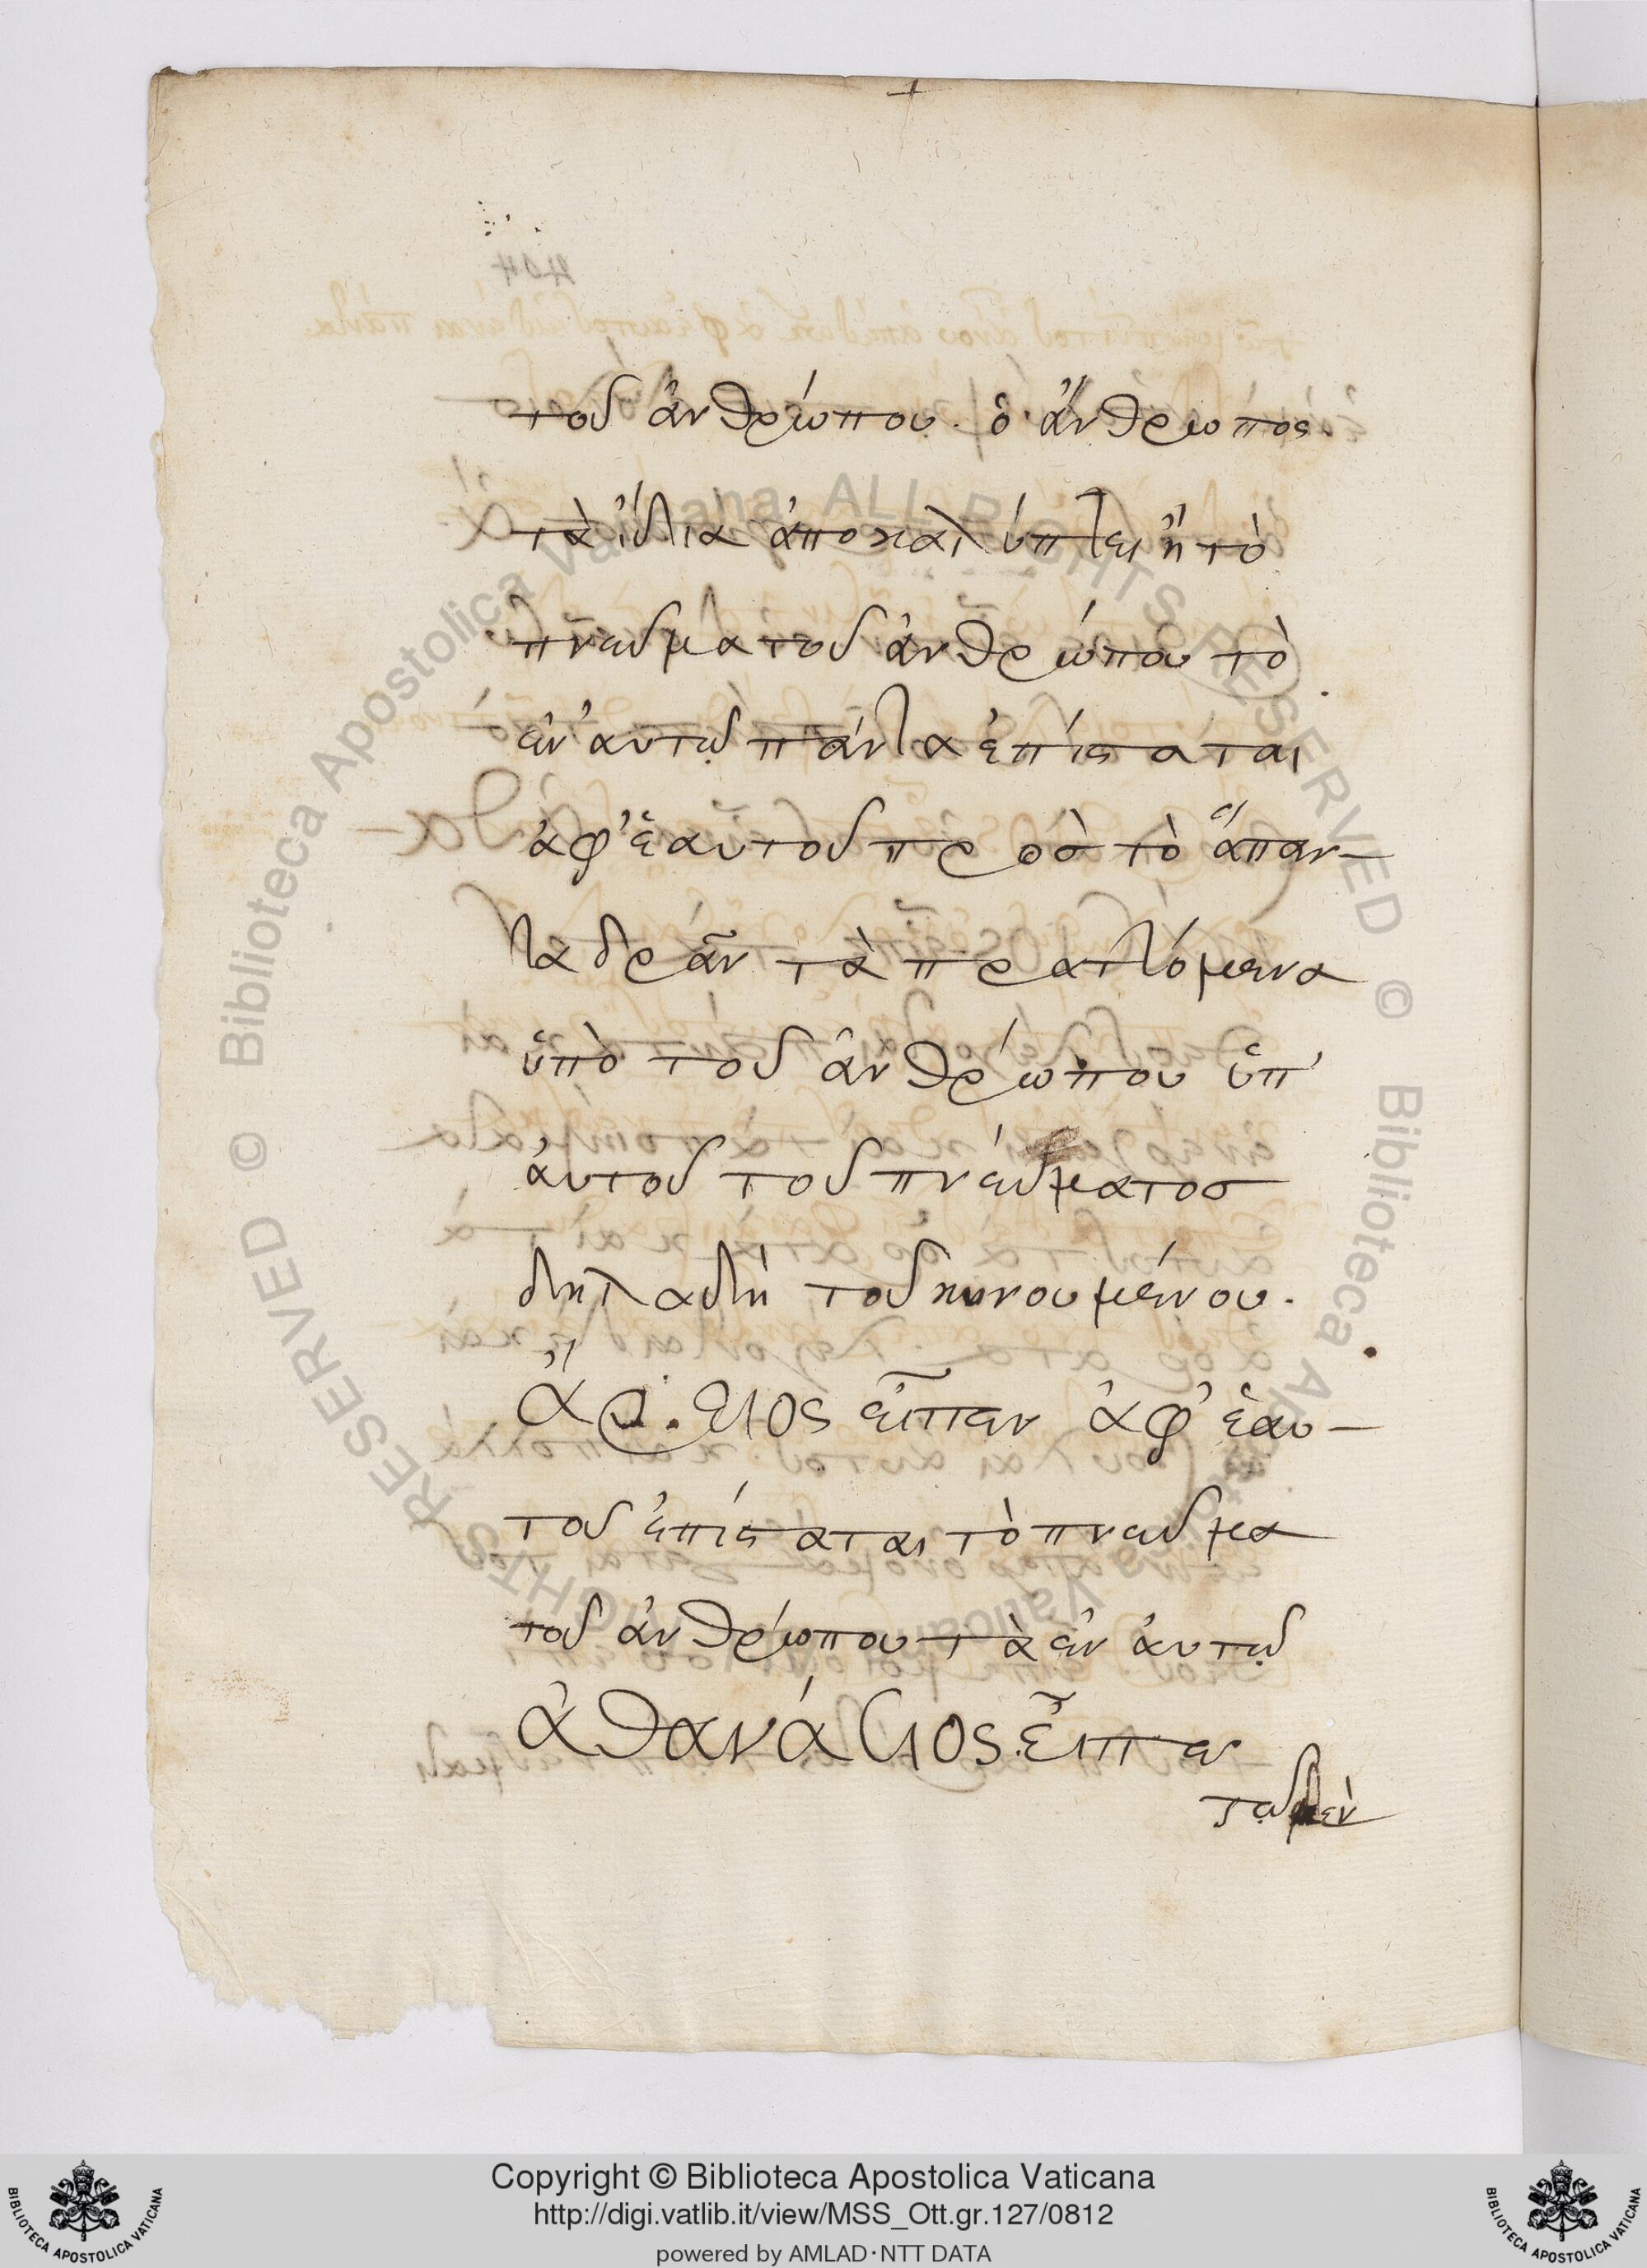 τοῦ ἀνθρώπου. ὁ ἄνθρωπος
τὰ ἴδια ἀποκαλύπτει ἢ τὸ
πνεῦμα τοῦ ἀνθρώπου τὸ
ἐν ἀυτῷ πάντα ἐπίσταται
ἀφ' ἑαυτοῦ πρὸσ τὸ ἅπαν-
τα δρᾶν τὰ πραττόμενα
ὑπὸ τοῦ ἀνθρώπου ὑπ'
ἀυτοῦ τοῦ πνεύματοσ
δηλαδὴ τοῦ κινουμένου.
ἄρειος εἶπεν ἀφ' ἑαυ-
τοῦ ἐπίσταται τὸ πνεῦμα
τοῦ ἀνθρώπου τὰ ἐν ἀυτῷ
ἀθανάσιος. εἶπεν
τῷ μὲν
Copyright © Biblioteca Apostolica Vaticana
http://digi.vatlib.it/view/MSS_Ott.gr.127/0812
powered by AMLAD·NTT DATA
BIBLIOTECA APOSTOLICA VATICANA
BIBLIOTECA APOSTOLICA VATICANA
© Biblioteca Apostolica Vaticana ALL RIGHTS RESERVED
© Biblioteca Apostolica Vaticana ALL RIGHTS RESERVED